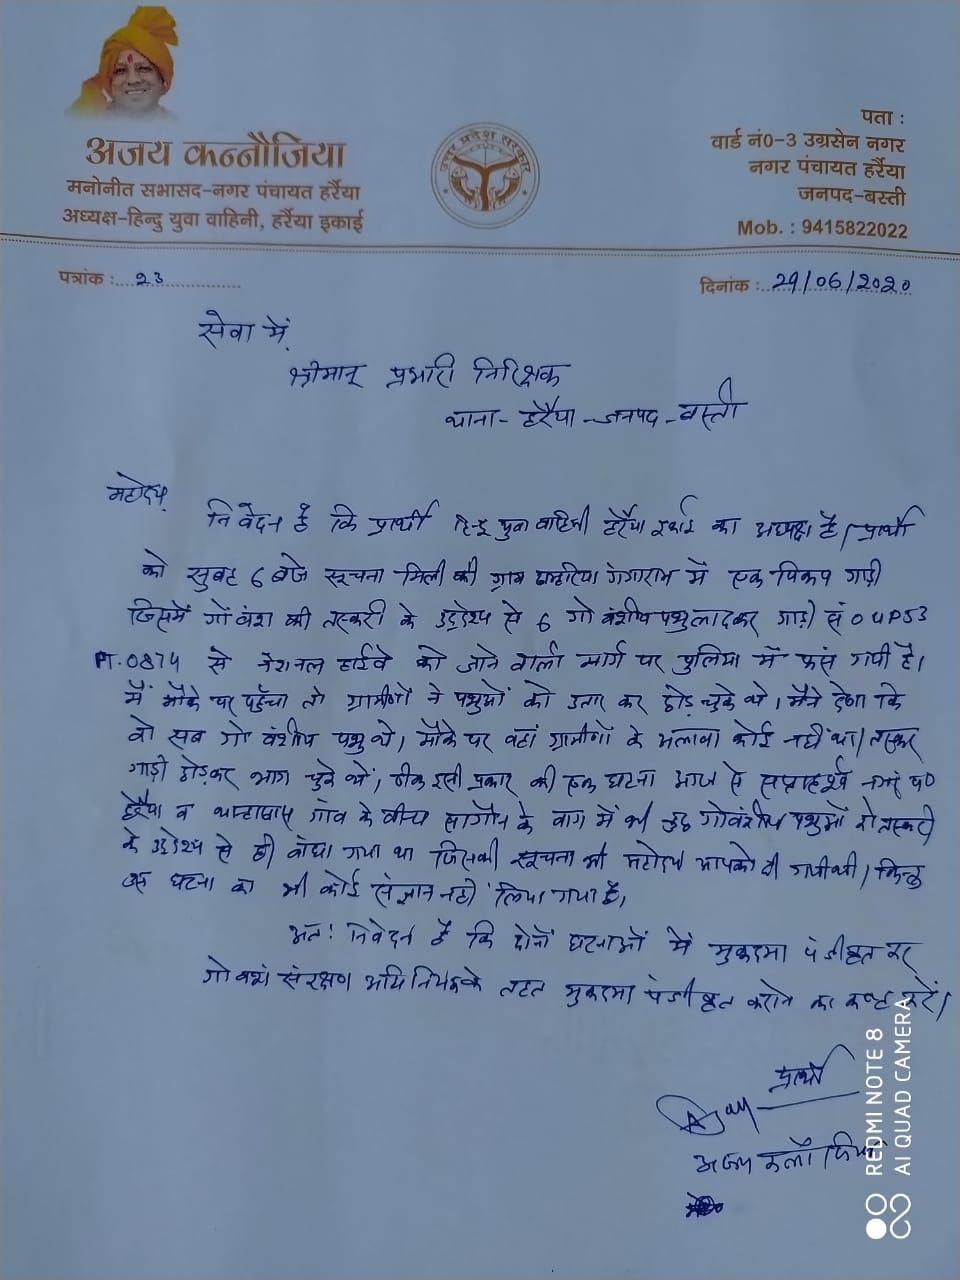 अजय कन्नौजिया
मनोनीत सभासद-नगर पंचायत हर्रैया
अध्यक्ष-हिन्दु युवा वाहिनी, हर्रैया इकाई
उत्तर प्रदेश सरकार
पता :
वार्ड नं0-3 उग्रसेन नगर
नगर पंचायत हर्रैया
जनपद-बस्ती
Mob. : 9415822022
पत्रांक : 23
दिनांक : 29/06/2020
सेवा में,
श्रीमान् प्रभारी निरिक्षक
थाना - हरैया - जनपद - बस्ती
महोदय,
निवेदन है कि प्रार्थी हिन्दू युवा वाहिनी हरैया इकाई का अध्यक्ष है। प्रार्थी
को सुबह 6 बजे सूचना मिली की ग्राम गंगाराम में एक पिकप गाड़ी
जिसमें गो वंश की तस्करी के उद्देश्य से 6 गो वंशीय पशु लादकर गाड़ी सं0 UP53
PT.0874 से नेशनल हाईवे को जाने वाली मार्ग पर पुलिया में फंस गयी है।
मैं मौके पर पहुँचा तो ग्रामीणों ने पशुओं को उतार कर छोड़ चुके थे, मैंने देखा कि
वो सब गो वंशीय पशु थे, मौके पर वहां ग्रामीणों के अलावा कोई नहीं था। तस्कर
गाड़ी छोड़कर भाग चुके थे, ठीक इसी प्रकार की एक घटना आज से नगर पं0
हरैया व गांव के बीच सागौन के बाग में भी कुछ गोवंशीय पशुओं को तस्करी
के उद्देश्य से ही बांधा गया था जिसकी सूचना भी महोदय आपको दी गयी थी, किन्तु
उस घटना का भी कोई संज्ञान नहीं लिया गया है,
अतः निवेदन है कि दोनों घटनाओं में मुकदमा पंजीकृत कर
गो वंश संरक्षण अधिनियम के तहत मुकदमा पंजीकृत कराने का कष्ट करें।
प्रार्थी
Ajay
अजय कन्नौजिया
REDMI NOTE 8
AI QUAD CAMERA